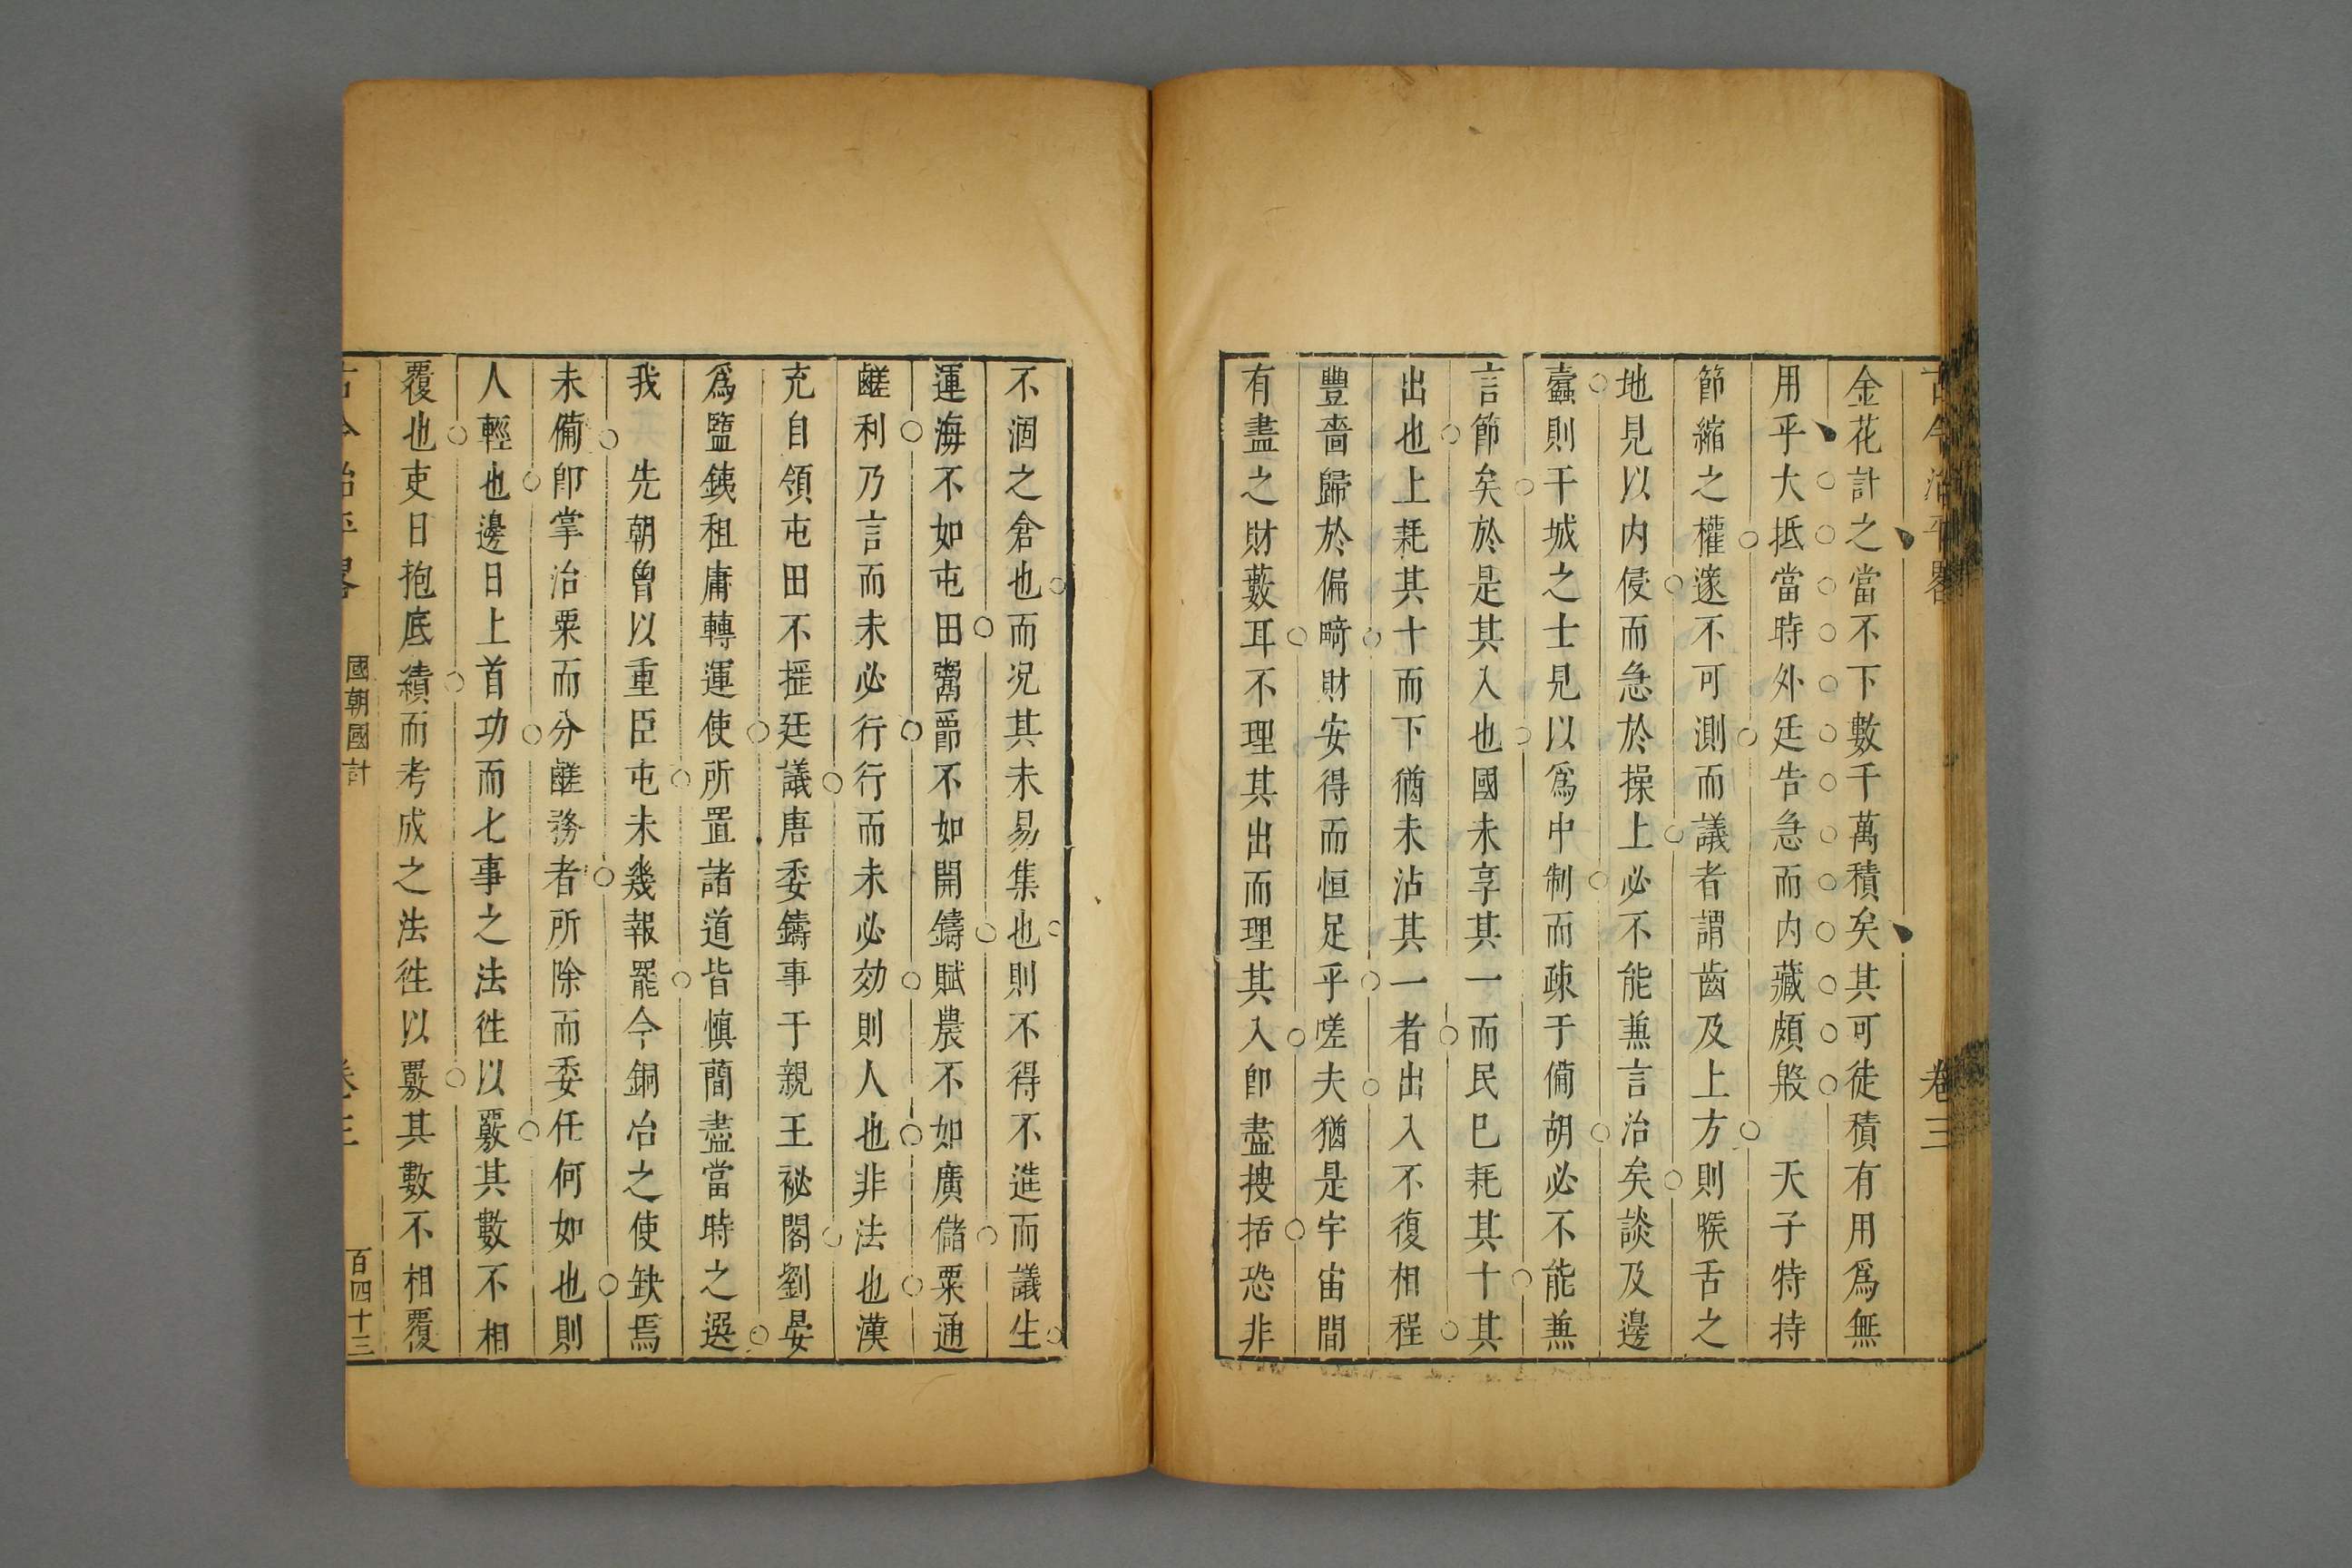 古今治平畧
卷三
金花計之當不下數千萬積矣其可徒積有用爲無
用乎大抵當時外廷告急而内藏頗殷　天子特持
節縮之權遂不可測而議者謂齒及上方則㬋舌之
地見以内侵而急於操上必不能兼言治矣談及邊
蠹則干城之士見以爲中制而疎于俻胡必不能兼
言節矣於是其入也國未享其一而民已耗其十其
出也上耗其十而下猶未沾其一者出入不復相程
豐嗇歸於偏畸財安得而恒足乎嗟夫猶是宇宙間
有盡之財藪耳不理其出而理其入卽盡搜括恐非
不涸之倉也而况其未易集也則不得不進而議生
運海不如屯田鬻爵不如開鑄賦農不如廣儲粟通
鹺利乃言而未必行行而未必効則人也非法也漢
充自領屯田不摇廷議唐委鑄事于親王袐閣劉晏
爲鹽鐵租庸轉運使所置諸道皆愼簡盡當時之選
我　先朝曾以重臣屯未幾報罷今銅冶之使缺焉
未俻卽掌治粟而分鹺務者所除而委任何如也則
人輕也邊日上首功而七事之法徃以覈其數不相
覆也吏日抱底績而考成之法徃以覈其數不相覆
古今治平畧
國朝國計
卷三
百四十三